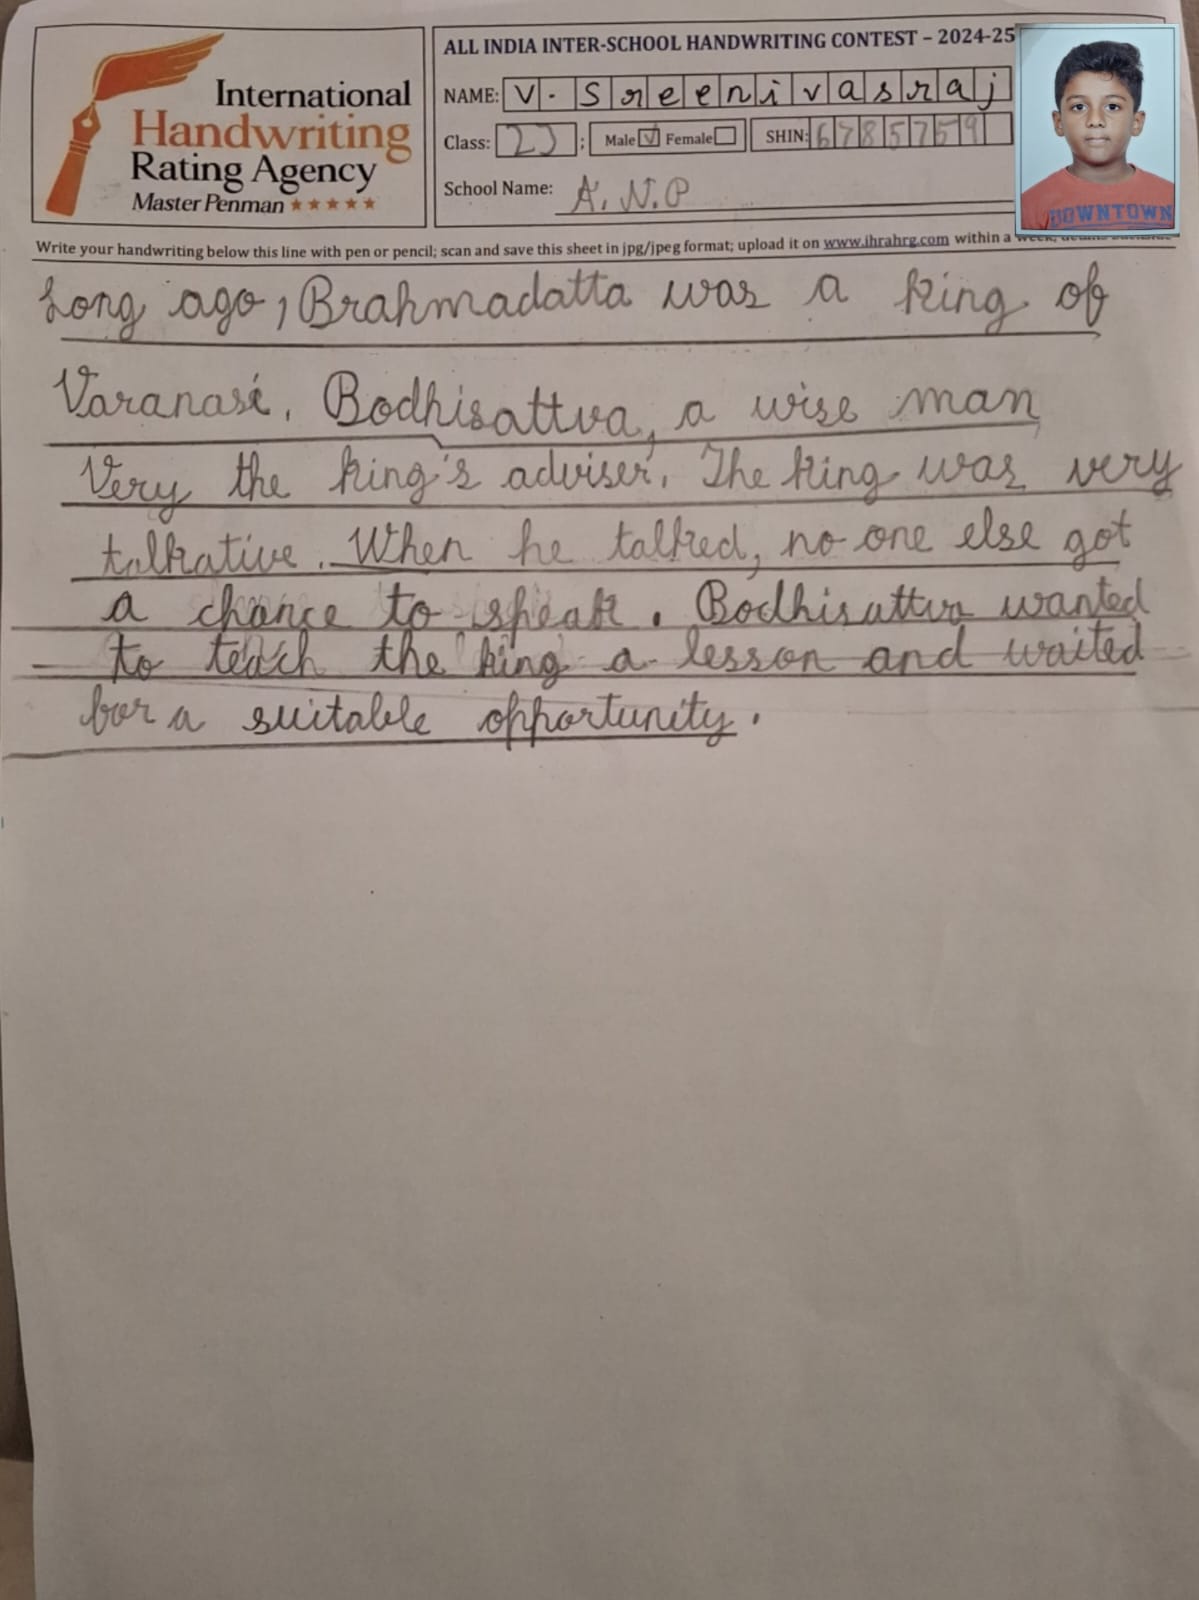 International
Handwriting
Rating Agency
Master Penman
ALL INDIA INTER-SCHOOL HANDWRITING CONTEST – 2024-25
NAME: V. Sreenivasraj
Class: ; Male ✓ Female SHIN: 6785759
School Name: A. N. P
Write your handwriting below this line with pen or pencil; scan and save this sheet in jpg/jpeg format; upload it on www.ihrahrg.com within a
DOWNTOWN
Long ago, Brahmadatta was a king of
Varanasi. Bodhisattva, a wise man
Very the king's adviser. The king was very
talkative. When he talked, no one else got
a chance to speak. Bodhisattva wanted
to teach the king a lesson and waited
for a suitable opportunity.